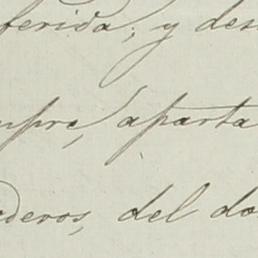 ferida; y des
mpre, aparta
ederos, del do